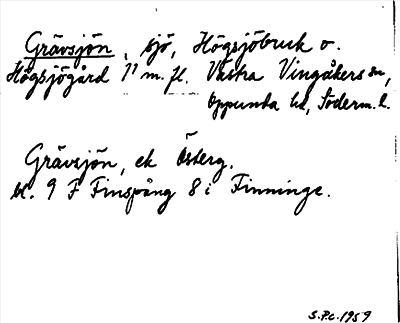 Grävsjön, sjö, Högsjöbruk o.
Högsjögård 1¹ m. fl. Västra Vingåkers sn,
Oppunda hd, Söderm. l.
Grävsjön, ek Österg.
bl. 9 F Finspång 8 i Finninge.
S.P.c. 1959